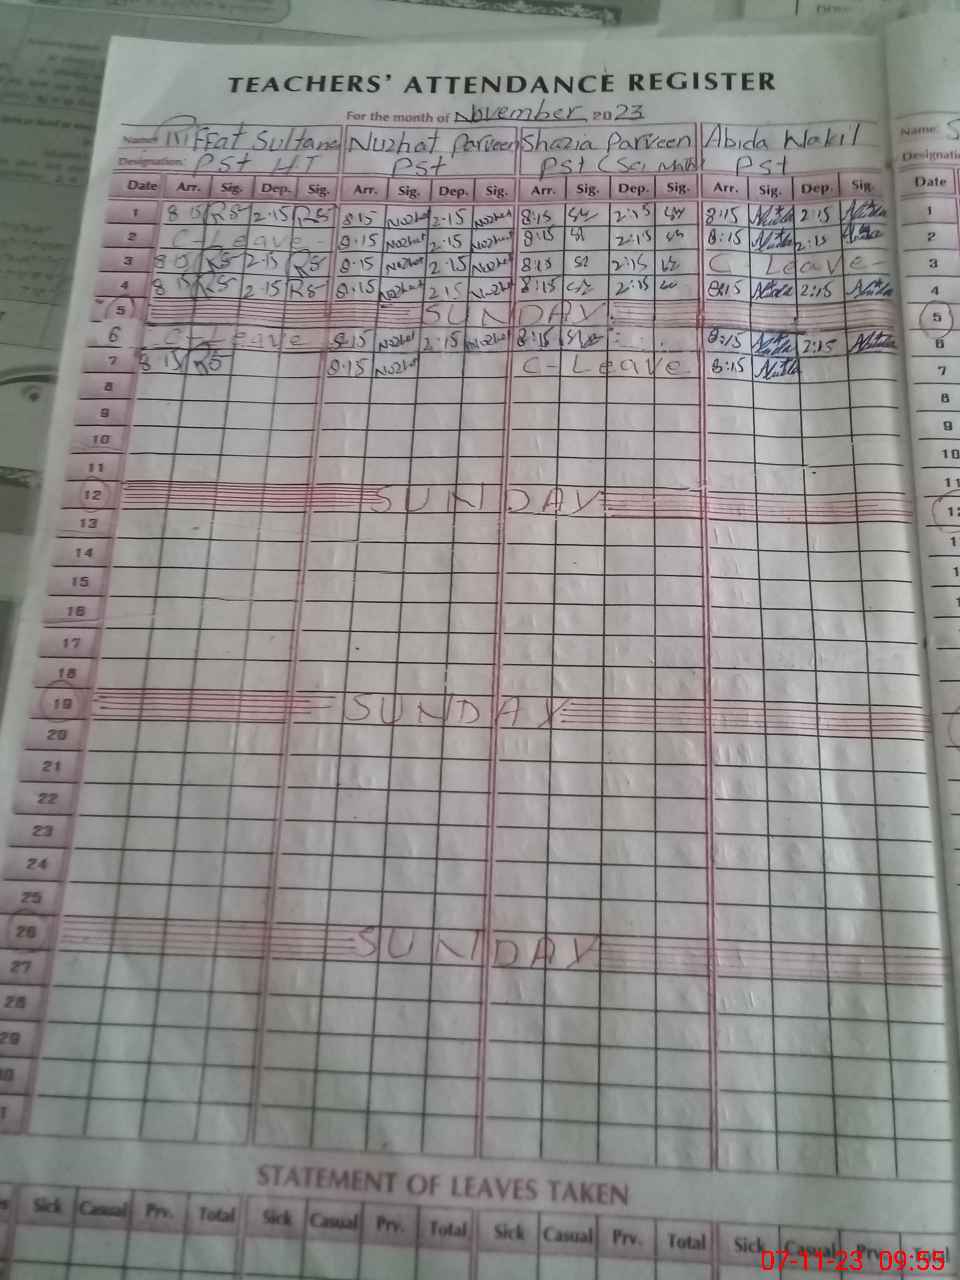 TEACHERS' ATTENDANCE REGISTER
For the month of November 2023
Name: Riffat Sultana Nuzhat Parveen Shazia Parveen Abida Wakil Name: S
Designation: PSt H.T PSt PSt (Sci Math) PSt Designati
Date Arr. Sig. Dep. Sig. Arr. Sig. Dep. Sig. Arr. Sig. Dep. Sig. Arr. Sig. Dep. Sig. Date
1 8 15 RS 2.15 RS 8.15 Nuzhat 2.15 Nuzhat 8:15 2:15 8:15 2:15 1
2 C-Leave- 8.15 Nuzhat 2.15 Nuzhat 8:15 2:15 8:15 2:15 2
3 8 15 RS 2.15 RS 8.15 Nuzhat 2.15 Nuzhat 8:15 2:15 C-Leave- 3
4 8 15 RS 2.15 RS 8.15 Nuzhat 2.15 Nuzhat 8:15 2:15 8:15 2:15 4
5 SUNDAY 5
6 C-Leave 8.15 Nuzhat 2.15 Nuzhat 8:15 8:15 2:15 6
7 8 15 RS 8.15 Nuzhat C-Leave 8:15 7
8 8
9 9
10 10
11 11
12 SUNDAY 12
13 1
14 1
15 1
16
17
18
19 SUNDAY
20
21
22
23
24
25
26 SUNDAY
27
28
29
30
1
STATEMENT OF LEAVES TAKEN
es Sick Casual Prv. Total Sick Casual Prv. Total Sick Casual Prv. Total Sick Casual Prv. Total
07-11-23 09:55